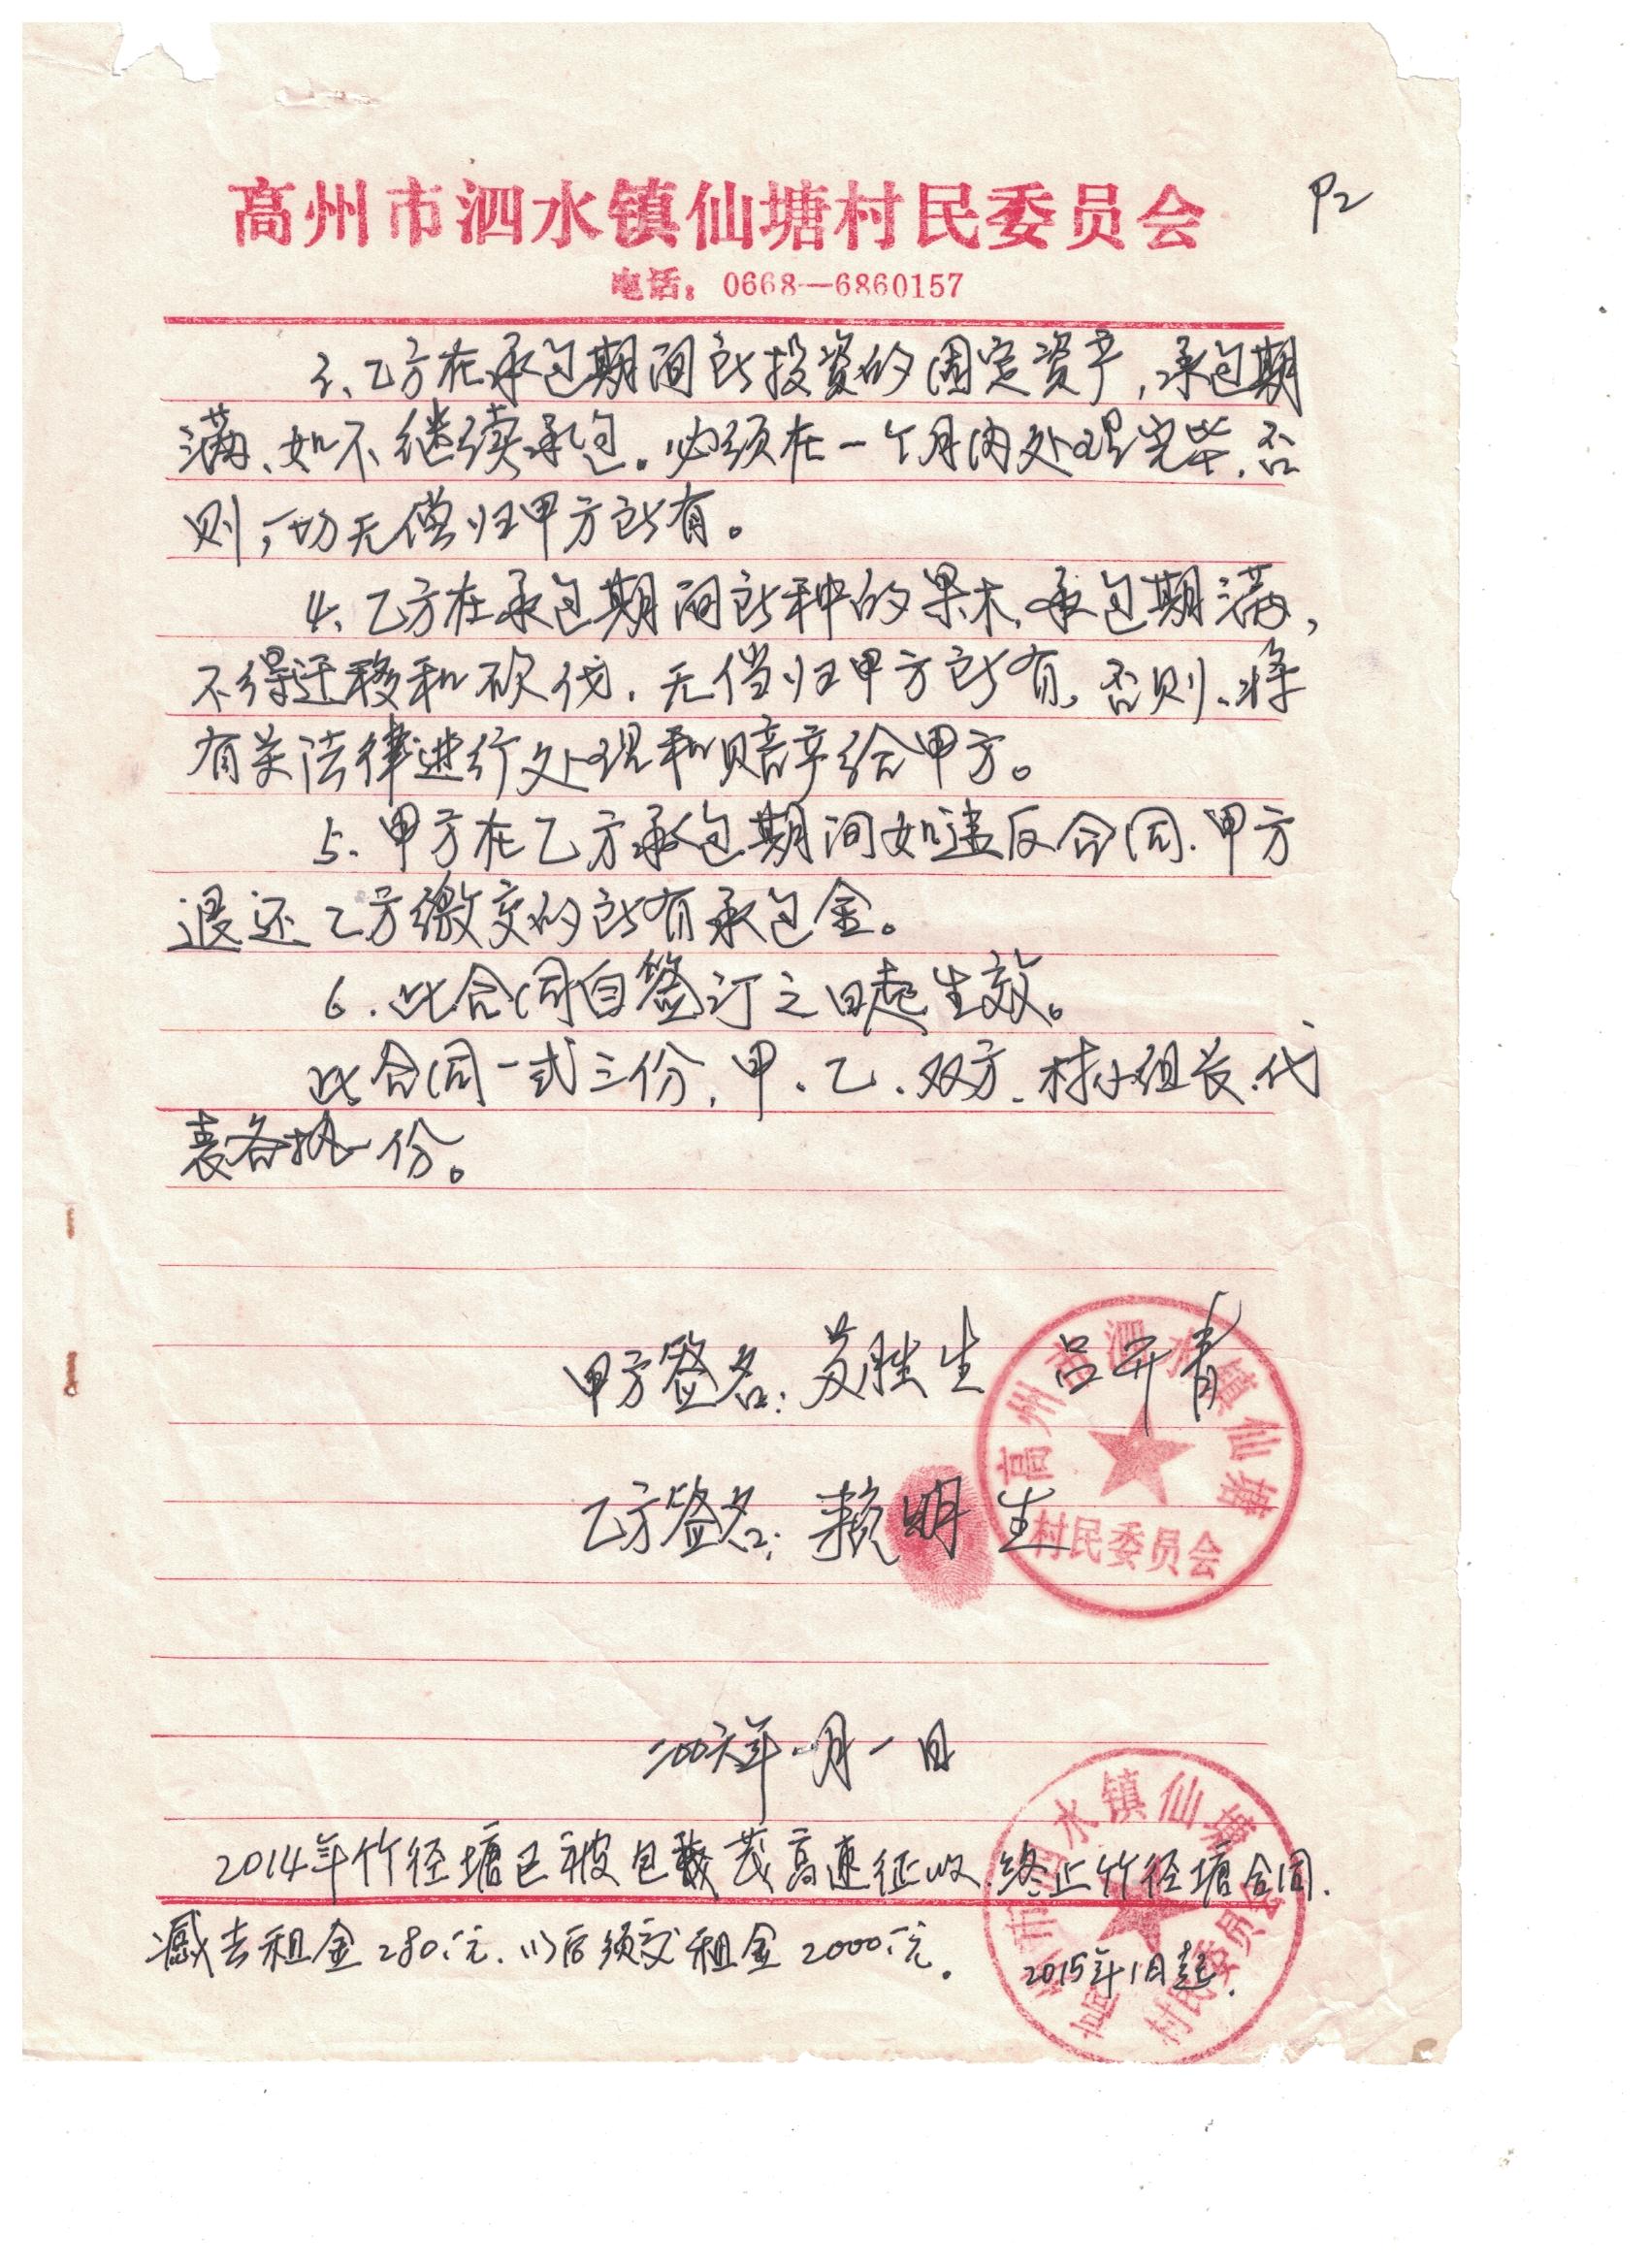 高州市泗水镇仙塘村民委员会
P2
电话：0668—6860157
3、乙方在承包期间所投资的固定资产，承包期
满、如不继续承包。必须在一个月内处理完毕，否
则，一切无偿归甲方所有。
4、乙方在承包期间所种的果木，承包期满，
不得迁移和砍伐，无偿归甲方所有，否则、将
有关法律进行处理和赔产给甲方。
5、甲方在乙方承包期间如违反合同．甲方
退还乙方缴交的所有承包金。
6．此合同自签订之日起生效。
此合同一式三份，甲、乙、双方、村小组长、代
表各执一份。
甲方签名：苏胜生 吕开青
乙方签名：赖明生
高州市泗水镇仙塘
村民委员会
二00六年一月一日
2014年竹径塘已被包茂高速征收．终止竹径塘合同．
减去租金280.元．以后须交租金2000.元． 2015年1月起．
市泗水镇仙塘
村民委员会